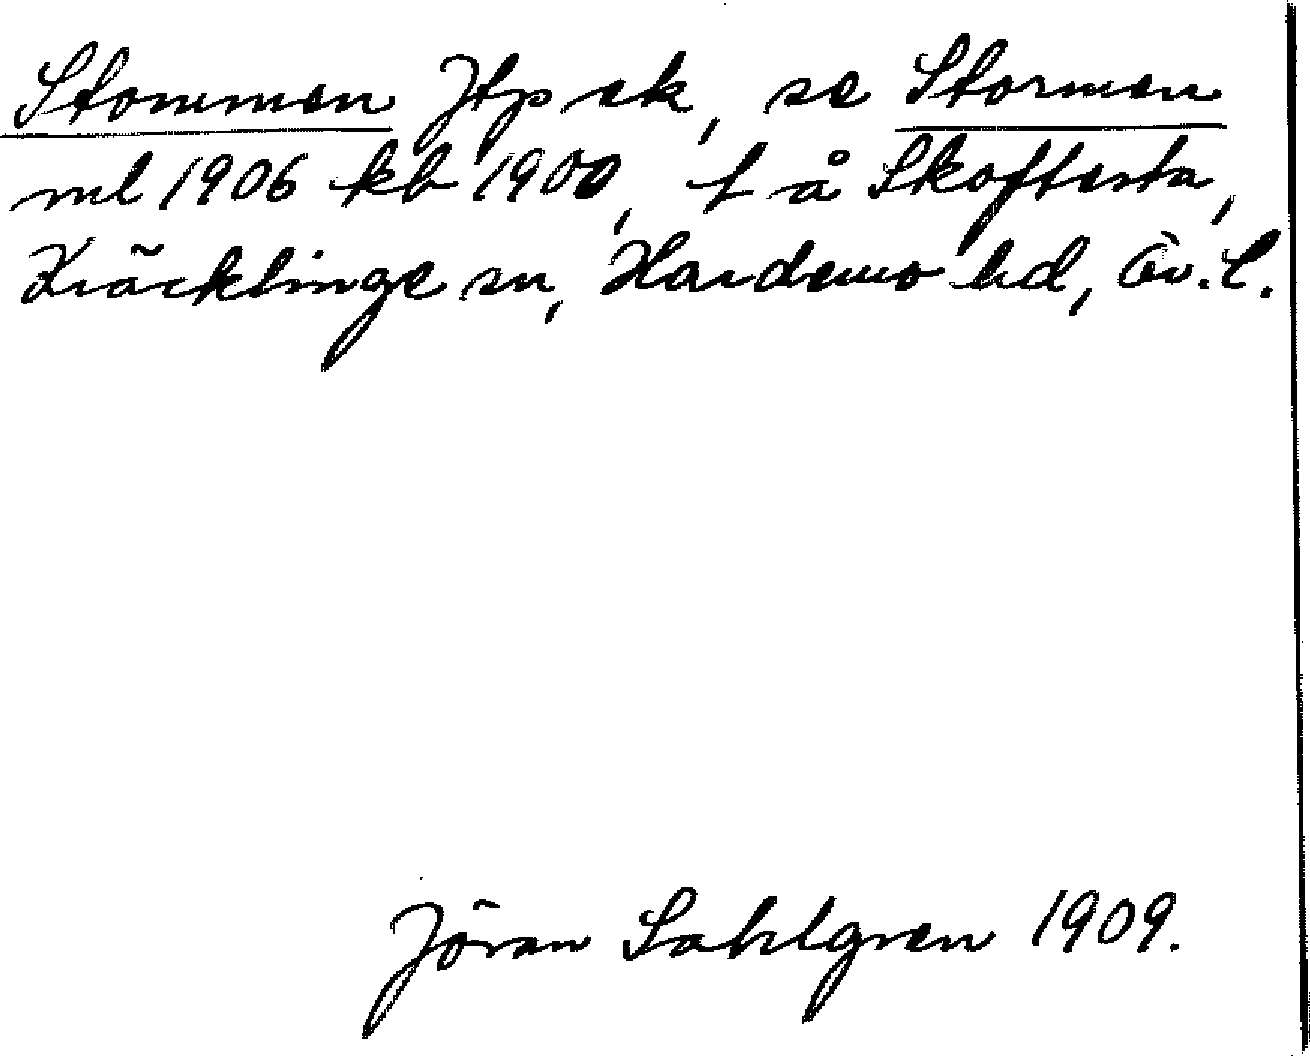 Stommen Jtp ek, se Stormen
ml 1906 kb 1900, t å Skoftesta,
Kräcklinge sn, Hardemo hd, Ör. l.
Jöran Sahlgren 1909.